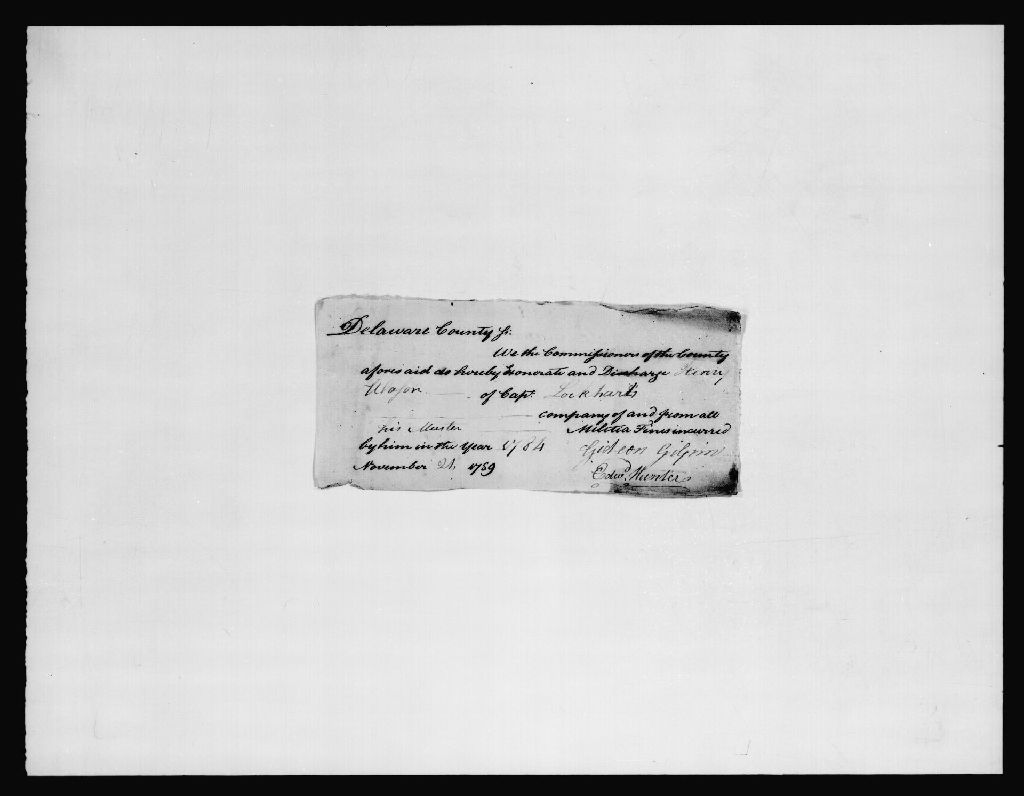 Delaware County ss.
We the Commissioners of the County
aforesaid do hereby Exonerate and Discharge Henry
of Capt. Lockharts
company of and from all
his Muster Militia Fines incurred
by him in the Year 1784 Gideon Gilpin
November 21 1789
Edwd. Hunter